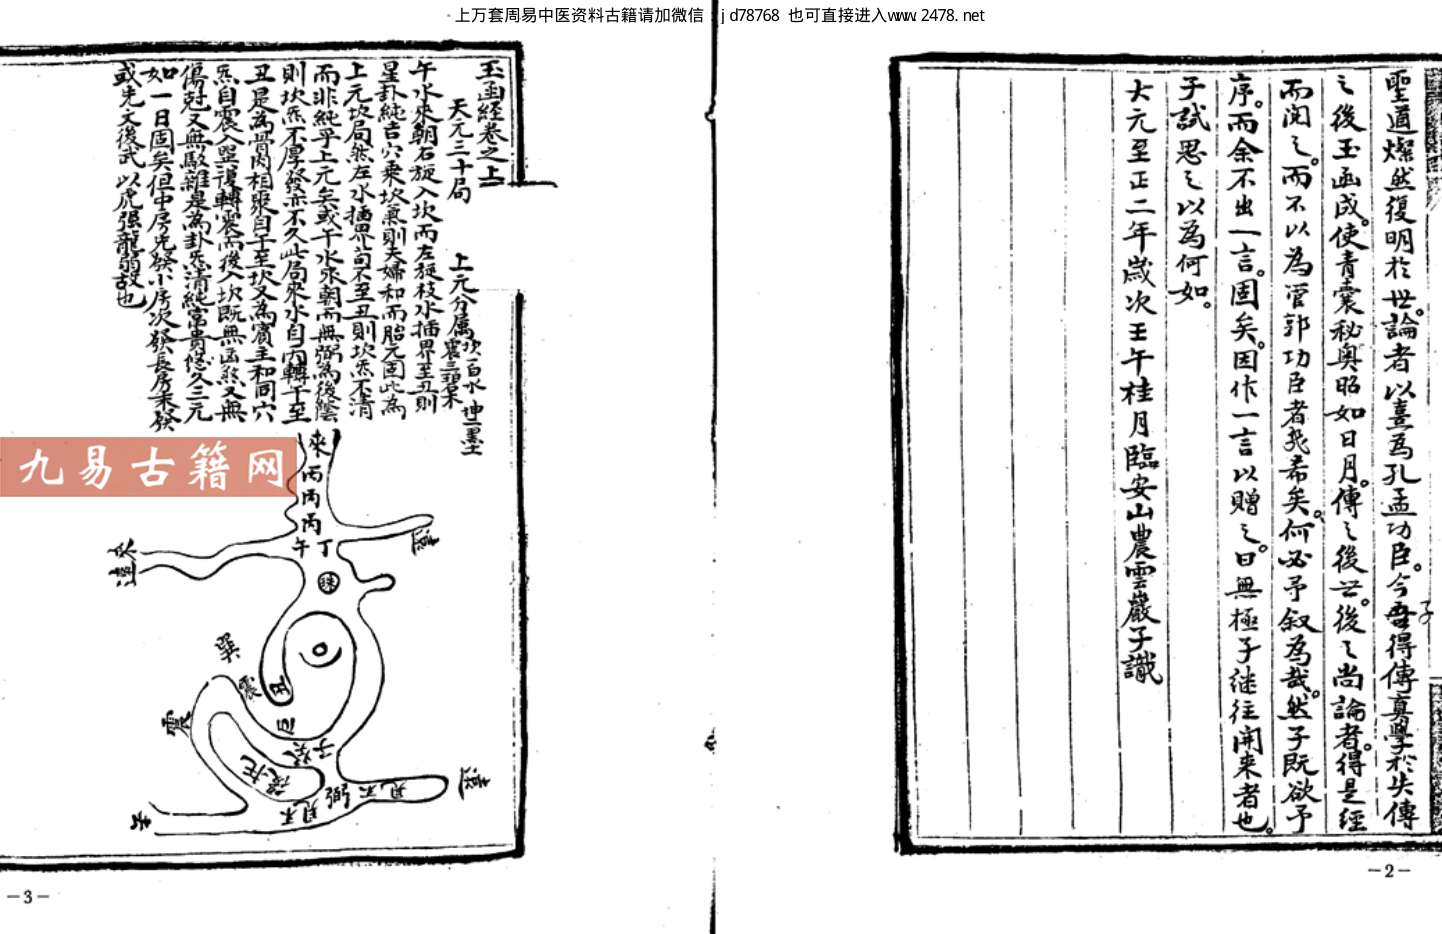 上万套周易中医资料古籍请加微信:jd78768 也可直接进入www.2478.net
聖道燦然復明於世。論者以喜為孔孟功臣。今吾子得傳真學於失傳
之後玉函成。使青囊秘奥昭如日月。傳之後世。後之尚論者。得是經
而閱之。而不以為管郭功臣者幾希矣。何必予叙為哉。然子既欲予
序。而余不出一言。固矣。因作一言以贈之。曰無極子继往開来者也。
子試思之以為何如。
大元至正二年歲次壬午桂月臨安山農雲巖子識
－2－
玉函經卷之上
天元三十局
上元分属坎一白水 坤二黑土
震三碧木
午水來朝右旋入坎而左旋枝水插界至丑則
星卦純吉穴乘坎氣則夫婦和而胎元固此為
上元坎局然左水插界苟不至丑則坎炁不清
而非純乎上元矣或午水來朝而無弼為後蔭
則坎炁不厚發亦不久此局來水自丙轉午至
丑是為骨肉相聚自午至坎又為賓主和同穴
炁自震入巽復轉震而後入坎既無凶煞又無
傷尅又無駁雜是為卦炁清純富貴悠久三元
如一日固矣但中房先發小房次發長房未發
或先文後武以虎强龍弱故也
來
丙
丙
丙
午
丁
巽
震
丑
震
子癸
弼
不見
不見
去
九易古籍网
－3－